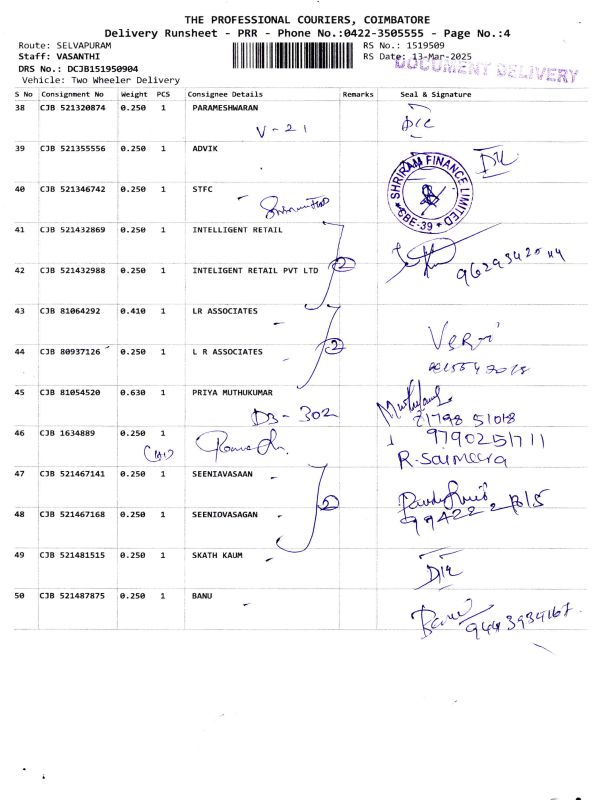 THE PROFESSIONAL COURIERS, COIMBATORE
Delivery Runsheet - PRR - Phone No.:0422-3505555 - Page No.:4
Route: SELVAPURAM RS No.: 1519509
Staff: VASANTHI RS Date: 13-Mar-2025
DOCUMENT DELIVERY
DRS No.: DCJB151950904
Vehicle: Two Wheeler Delivery
S No Consignment No Weight PCS Consignee Details Remarks Seal & Signature
38 CJB 521320874 0.250 1 PARAMESHWARAN
V-21
39 CJB 521355556 0.250 1 ADVIK
40 CJB 521346742 0.250 1 STFC
SHRIRAM FINANCE LIMITED
*CBE-39*
41 CJB 521432869 0.250 1 INTELLIGENT RETAIL
42 CJB 521432988 0.250 1 INTELIGENT RETAIL PVT LTD 2
43 CJB 81064292 0.410 1 LR ASSOCIATES
44 CJB 80937126 0.250 1 L R ASSOCIATES 2
45 CJB 81054520 0.630 1 PRIYA MUTHUKUMAR
D3-302
46 CJB 1634889 0.250 1 9790251711
R-Saimeera
47 CJB 521467141 0.250 1 SEENIAVASAAN
2
48 CJB 521467168 0.250 1 SEENIOVASAGAN
49 CJB 521481515 0.250 1 SKATH KAUM
50 CJB 521487875 0.250 1 BANU
Banu